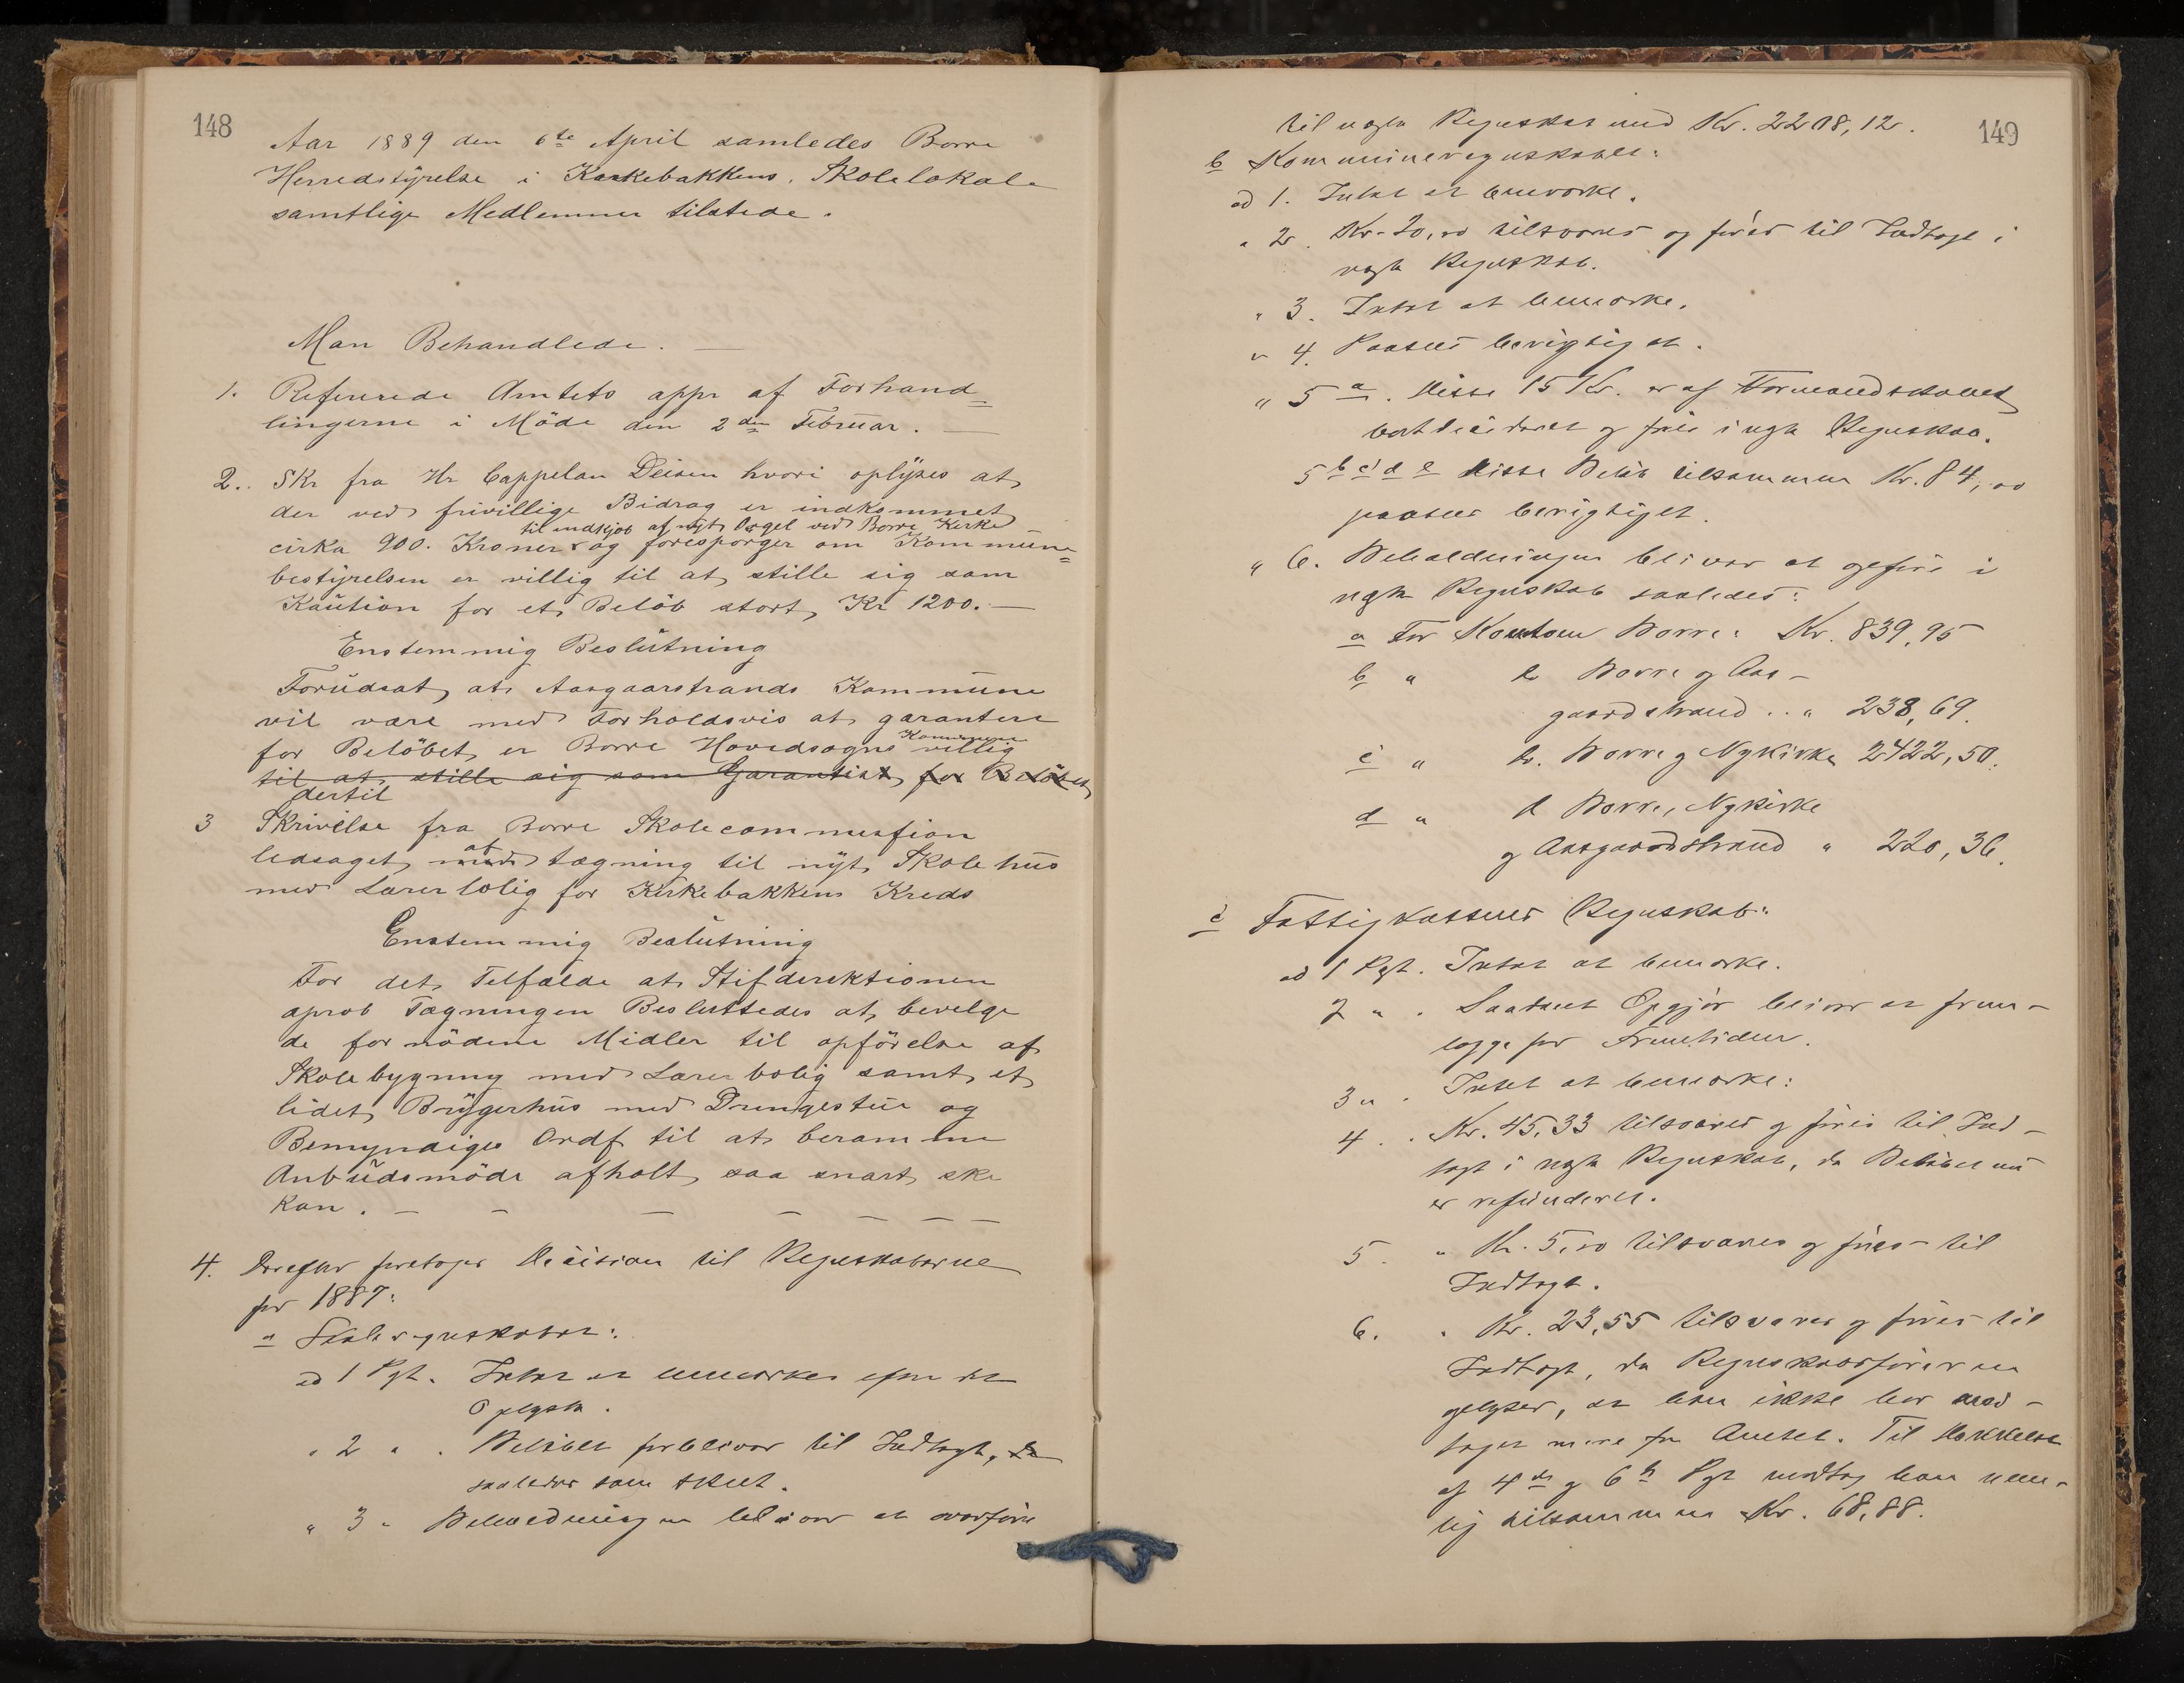 148
Aar 1889 den 6te April samledes Borre
Herredstyrelse i Kirkebakkens Skolelokale
samtlige Medlemmer tilstede.
Man Behandlede.
1. Refererede Amtets appr af Forhand=
lingerne i Möde den 2den Februar.
2. Skr fra Hr Cappelan Deisen hvori oplyses at
der ved frivillige Bidrag er indkommet
til indkjöb af nyt Orgel ved Borre Kirke
cirka 900. Kroner og forespörger om Kommune=
bestyrelsen er villig til at stille sig som
Kaution for et Belöb stort, Kr 1200.
Enstemmig Beslutning
Forudsat, at Aasgaarstrands Kommune
vil være med Forholdsvis at garantere
for Belöbet, er Borre Hovedsogns Kommune villig
til at stille sig som Garantist for Belöbet
dertil
3 Skrivelse fra Borre Skolecommission
ledsaget med af tægning til nyt Skolehus
med Lærerbolig for Kirkebakkens Kreds
Enstemmig Beslutning
For det Telfælde at Stifdirektionen
aprob Tægningen Besluttedes at bevelge
de fornödene Midler til opförelse af
Skolebygning med Lærerbolig samt et
lidet Bryggerhus med Drengestue og
Bemyndiges Ordf til at beramme
Anbudsmöde afholt saa snart ske
kan.
4. Derefter foretoges Decision til Regnskaberne
for 1887:
a Skoleregnskabet:
ad 1 Pgt. Intet at bemærke efter det
Oplyste.
" 2 " . Belöbet forbliver til Indtægt,
saaledes som skeet.
" 3 " Beholdningen bliver at overföre
149
til næste Regnskab med Kr. 2208,12.
b Kommuneregnskabet:
ad 1. Intet at bemærke.
" 2. Kr. 20,00 tilsvares og föres til Indtægt i
næste Regnskab.
" 3. Intet at bemærke.
" 4. Paasees berigtiget.
" 5 a. Disse 15 Kr. er af Formandskabet
bortdecideret og föres i næste Regnskab.
5 b c d e Disse Belöb tilsammen Kr. 84,00
paasees berigtiget.
" 6. Beholdningen bliver at opföre i
næste Regnskab saaledes:
a For Kontoen Borre: Kr. 839,95
b " Borre og Aas-
gaardstrand .. " 238,69.
c " Borre og Nykirke 2422,50.
d " Borre, Nykirke
og Aasgaardstrand " 220,36.
c Fattigkassens Regnskab:
ad 1 Pgt. Intet at bemærke.
2 " . Saadant Opgjör bliver at frem-
lægge for Fremtiden.
3 " . Intet at bemærke:
4 . . Kr. 45,33 tilsvares og föres til Ind-
tægt i næste Regnskab, da Belöbet nu
er refunderet.
5. " Kr. 5,00 tilsvares og föres til
Indtægt.
6. " Kr. 23,55 tilsvares og föres til
Indtægt, da Regnskabsföreren
oplyser, at han ikke har mod-
taget mere fra Amtet. Til Dækkelse
af 4de og 6te Pgt modtog han nem-
lig tilsammen Kr. 68,88.